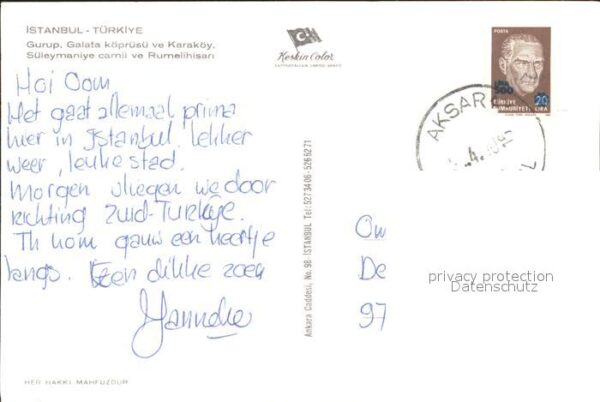 İSTANBUL - TÜRKİYE
Gurup, Galata köprüsü ve Karaköy,
Süleymaniye camii ve Rumelihisarı
Keskin Color
POSTA
500
20
LİRA
TÜRKİYE
CUMHURİYETİ
AKSAR
Hoi Oom
Het gaat allemaal prima
hier in Istanbul. lekker
weer, leuke stad.
Morgen vliegen we door
richting Zuid-Turkije.
Ik kom gauw een keertje
langs. Een dikke zoen
Janneke
Ankara Caddesi, No. 98 İSTANBUL Tel: 5273406-5266271
De
97
privacy protection
Datenschutz
HER HAKKI MAHFUZDUR